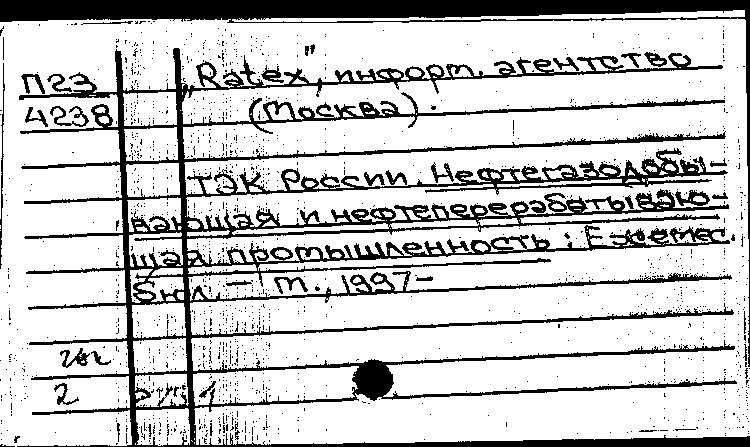 П23
4238
„Ratex", информ. агентство
(Москва).
ТЭК России. Нефтегазодобы-
вающая и нефтеперерабатываю-
щая промышленность : Ежемес.
бюл. – М., 1997–
2